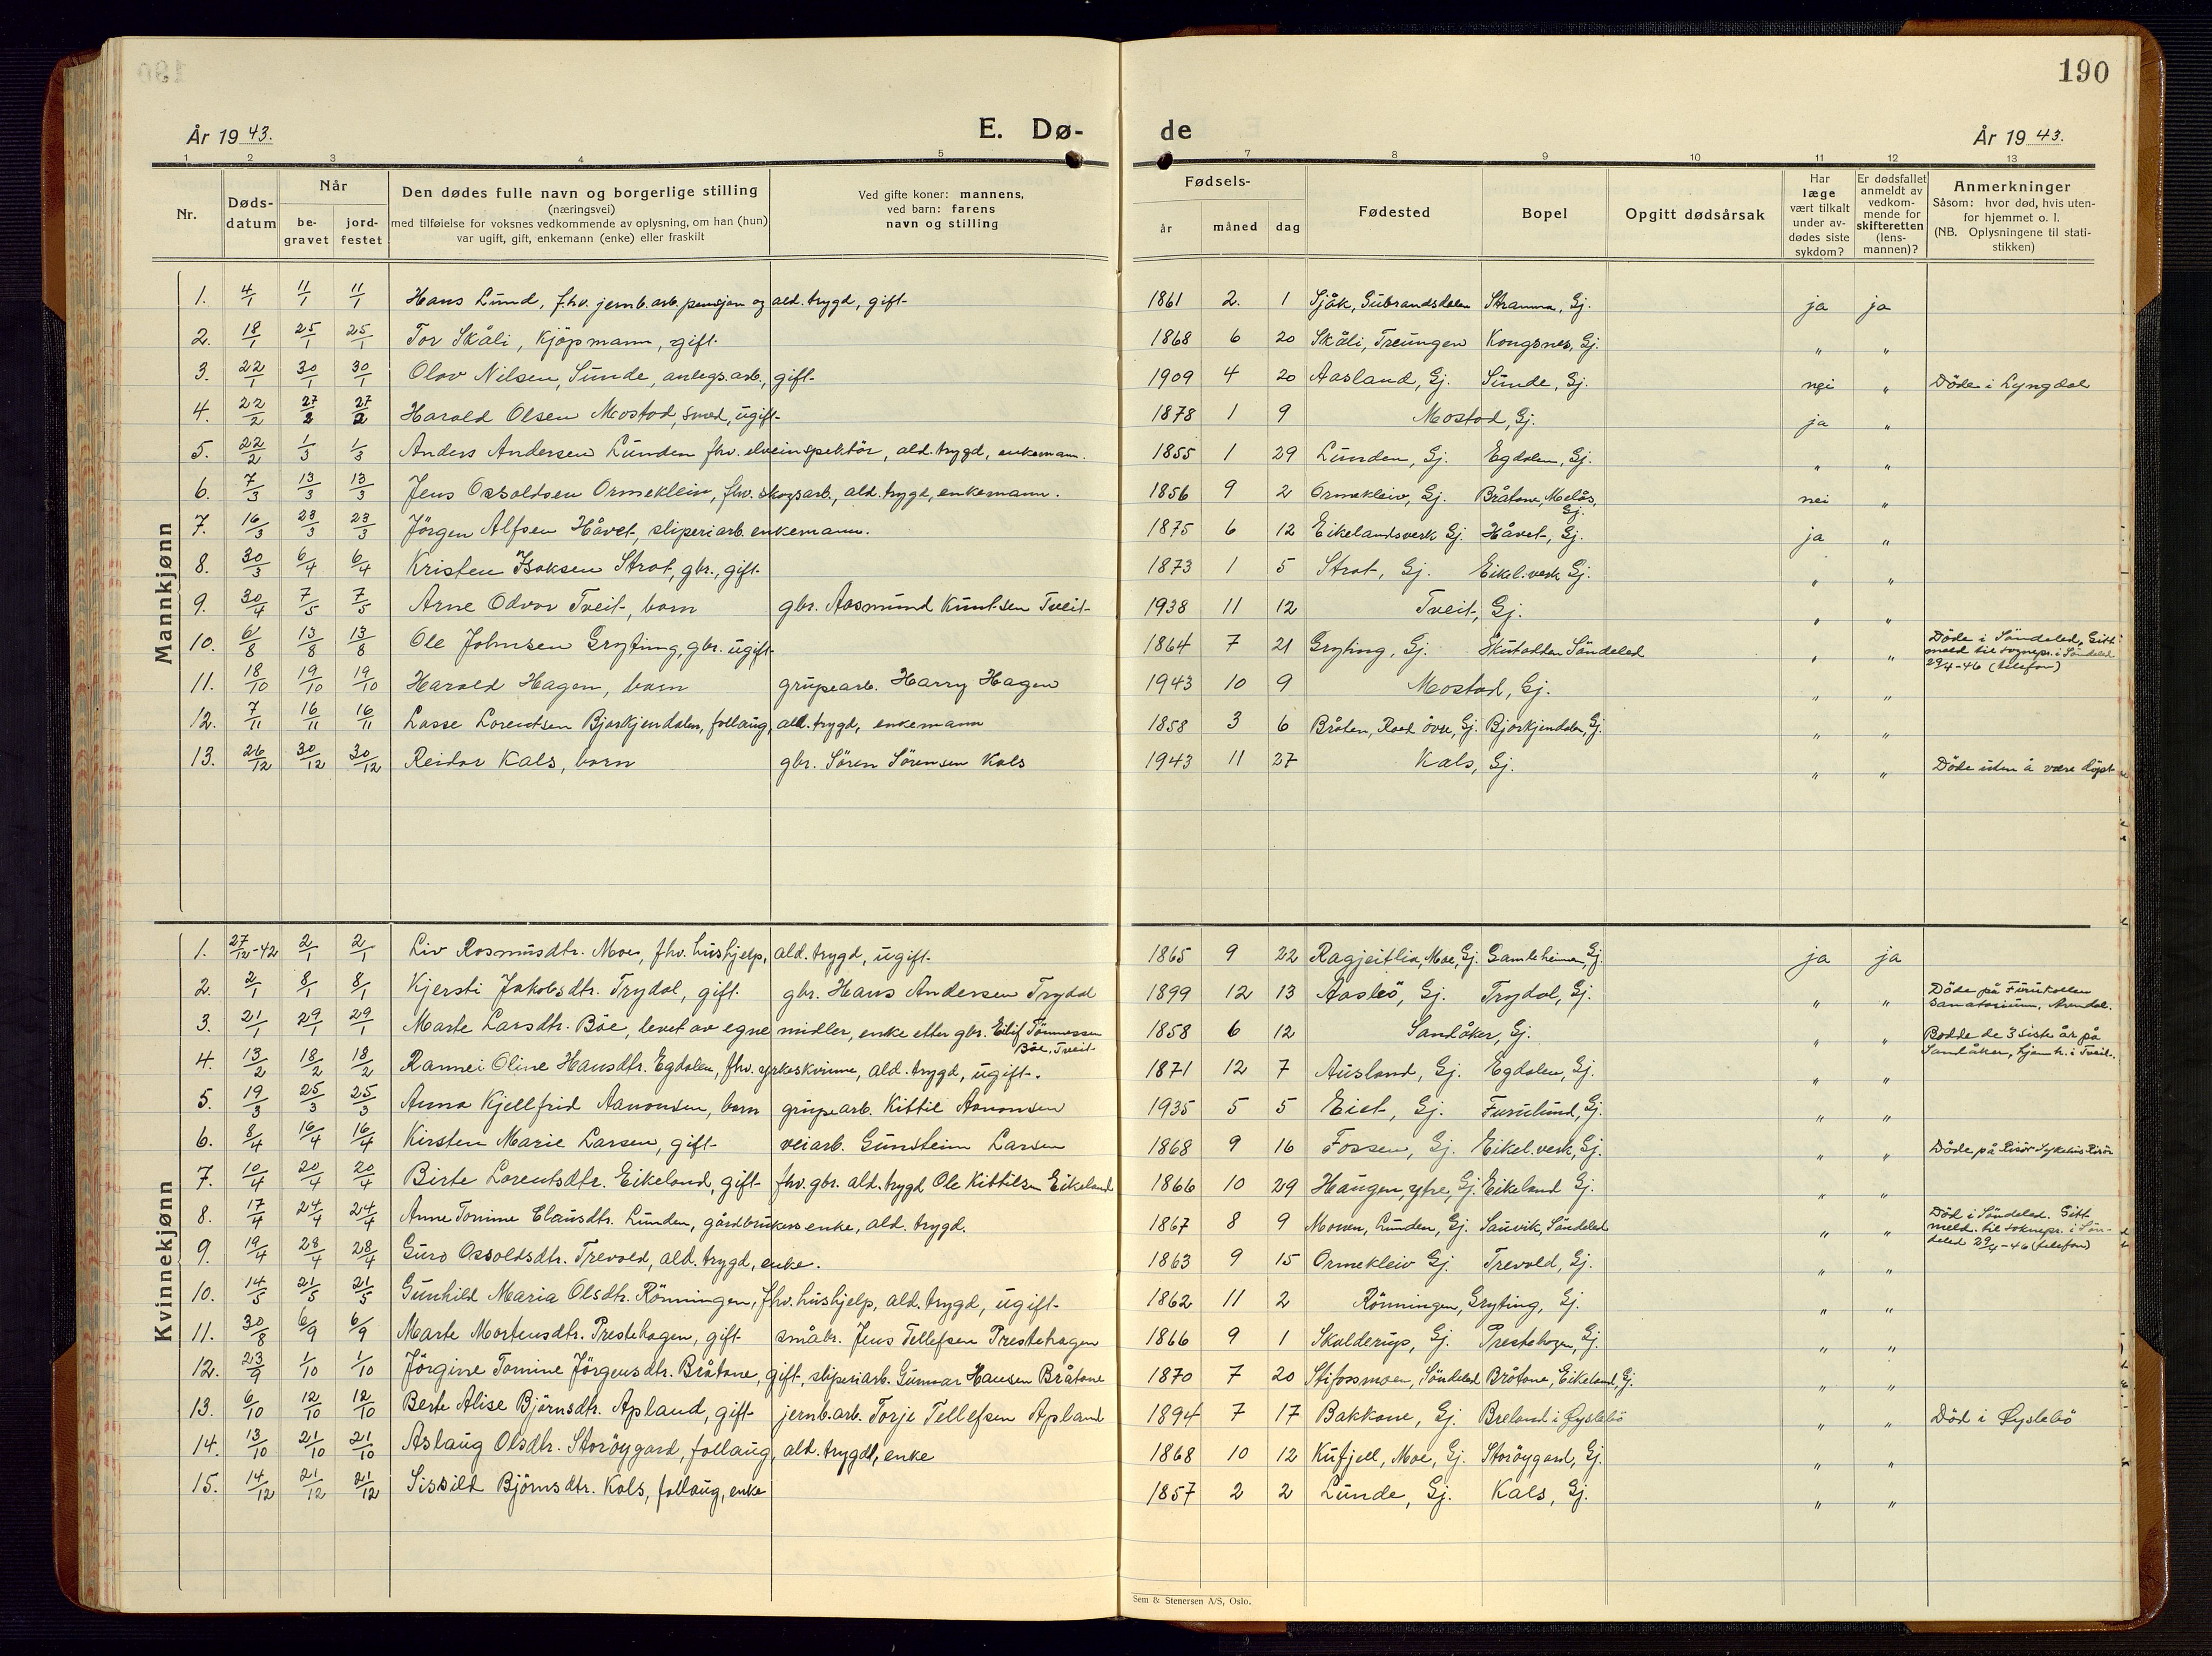 190
År 1943.
E. Dø-
de
År 1943.
1 2 3 4 5 7 8 9 10 11 12 13
Nr.
Døds-
datum
Når
be-
gravet
jord-
festet
Den dødes fulle navn og borgerlige stilling
(næringsvei)
med tilføielse for voksnes vedkommende av oplysning, om han (hun)
var ugift, gift, enkemann (enke) eller fraskilt
Ved gifte koner: mannens,
ved barn: farens
navn og stilling
Fødsels-
år måned dag
Fødested
Bopel
Opgitt dødsårsak
Har
læge
vært tilkalt
under av-
dødes siste
sykdom?
Er dødsfallet
anmeldt av
vedkom-
mende for
skifteretten
(lens-
mannen)?
Anmerkninger
Såsom: hvor død, hvis uten-
for hjemmet o. l.
(NB. Oplysningene til stati-
stikken)
Mannkjønn
1. 4/1 11/1 11/1 Hans Lund, fhv. jernb.arb. pensjon og ald. trygd, gift 1861 2. 1 Sjåk, Gubrandsdalen Stramma, Gj. ja ja
2. 18/1 25/1 25/1 Tor Skåli, Kjöpmann, gift 1868 6 20 Skåli, Treungen Kongsnes, Gj. " "
3. 22/1 30/1 30/1 Olav Nilsen, Sunde, anlegs.arb., gift 1909 4 20 Aasland, Gj. Sunde, Gj. nei " Döde i Lyngdal
4. 22/2 27/2 27/2 Harald Olsen Mostad, smed, ugift 1878 1 9 Mostad, Gj. ja "
5. 22/2 1/3 1/3 Anders Andersen Lunden fhv. elveinspektör, ald. trygd, enkemann. 1855 1 29 Lunden, Gj. Egdalen, Gj. " "
6. 7/3 13/3 13/3 Jens Osvoldsen Ormekleiv, fhv. skogsarb., ald. trygd, enkemann. 1856 9 2 Ormekleiv, Gj. Bråtane, Melås, Gj. nei "
7. 16/3 23/3 23/3 Jörgen Alfsen Håvet, sliperiarb. enkemann. 1875 6 12 Eikelandsverk Gj. Håvet, Gj. ja "
8. 30/3 6/4 6/4 Kristen Isaksen Strat, gbr., gift 1873 1 5 Strat, Gj. Eikel.verk Gj. " "
9. 30/4 7/5 7/5 Arne Odvar Tveit, barn gbr. Aasmund Knutsen Tveit 1938 11 12 Tveit, Gj. " "
10. 6/8 13/8 13/8 Ole Johnsen Gryting, gbr. ugift 1864 7 21 Gryting, Gj. Söndeled " " Döde i Söndeled, Gitt
meld. til sognepr. i Söndeled
29/4-46 (telefon)
11. 18/10 19/10 19/10 Harald Hagen, barn grupearb. Harry Hagen 1943 10 9 Mostad, Gj. " "
12. 7/11 16/11 16/11 Lasse Lorentsen Bjorkjendalen, follaug, ald. trygd, enkemann 1858 3 6 Bråten, Roed övre, Gj. Bjorkjendalen, Gj. " "
13. 26/12 30/12 30/12 Reidar Kals, barn gbr. Sören Sörensen Kals 1943 11 27 Kals, Gj. " " Döde uten å være döpt
Kvinnekjønn
1. 27/12-42 2/1 2/1 Liv Rasmusdtr. Moe, fhv. hushjelp, ald. trygd, ugift. 1865 9 22 Ragjeitlia, Moe, Gj. Gamleheimen, Gj. ja ja
2. 2/1 8/1 8/1 Kjersti Jakobsdtr. Trydal, gift. gbr. Hans Andersen Trydal 1899 12 13 Aaslö, Gj. Trydal, Gj. " " Döde på Furukollen
Sanatorium, Arendal.
3. 21/1 29/1 29/1 Marte Larsdtr. Böe, levet av egne midler, enke etter gbr. Eilif Tönnessen
Böe, Tveit 1858 6 12 Sandåker, Gj. " " Bodde de 3 siste år på
Sandåker, hjemh. i Tveit.
4. 13/2 18/2 18/2 Rannei Oline Hansdtr. Egdalen, fhv. yrkeskvinne, ald. trygd, ugift. 1871 12 7 Ausland, Gj. Egdalen, Gj. " "
5. 19/3 25/3 25/3 Anna Kjellfrid Aanonsen, barn grupearb. Kittil Aanonsen 1935 5 5 Eiet, Gj. Furulund, Gj. " "
6. 8/4 16/4 16/4 Kirsten Marie Larsen, gift veiarb. Gunsteim Larsen 1868 9 16 Fossen, Gj. Eikel.verk, Gj. " " Döde på Risör Sykehus Risör
7. 10/4 20/4 20/4 Birte Lorentsdtr. Eikeland, gift fhv. gbr. ald. trygd Ole Kittilsen Eikeland 1866 10 29 Haugen, ytre, Gj. Eikeland Gj. " "
8. 17/4 24/4 24/4 Anne Tomine Clausdtr. Lunden, gårdbrukers enke, ald. trygd. 1867 8 9 Moven, Lunden, Gj. Sauvik, Söndeled " " Död i Söndeled. Gitt
meld. til soknepr. i Sön-
deled 29/4-46 (telefon)
9. 19/4 28/4 28/4 Guro Osvoldsdtr. Trevold, ald. trygd, enke. 1863 9 15 Ormekleiv Gj. Trevold, Gj. " "
10. 14/5 21/5 21/5 Gunhild Maria Olsdtr. Rönningen, fhv. hushjelp, ald. trygd, ugift 1862 11 2 Rönningen, Gryting, Gj. " "
11. 30/8 6/9 6/9 Marte Mortensdtr. Prestehagen, gift småbr. Jens Tellefsen Prestehagen 1866 9 1 Skalderup, Gj. Prestehagen, Gj. " "
12. 23/9 1/10 1/10 Jörgine Tomine Jörgensdtr. Bråtane, gift, sliperiarb. Gunnar Hansen Bråtane 1870 7 20 Stifossmoen, Söndeled Bråtane, Eikeland, Gj. " "
13. 6/10 12/10 12/10 Berte Alise Björnsdtr. Apland, gift jernb.arb. Torje Tellefsen Apland 1894 7 17 Bakkane, Gj. Breland i Öyslebö " " Död i Öyslebö
14. 13/10 21/10 21/10 Aslaug Olsdtr. Storöygard, follaug, ald. trygd, enke 1868 10 12 Kufjell, Moe, Gj. Storöygard, Gj. " "
15. 14/12 21/12 21/12 Sissild Björnsdtr. Kals, follaug, enke 1857 2 2 Lunde, Gj. Kals, Gj. " "
Sem & Stenersen A/S, Oslo.